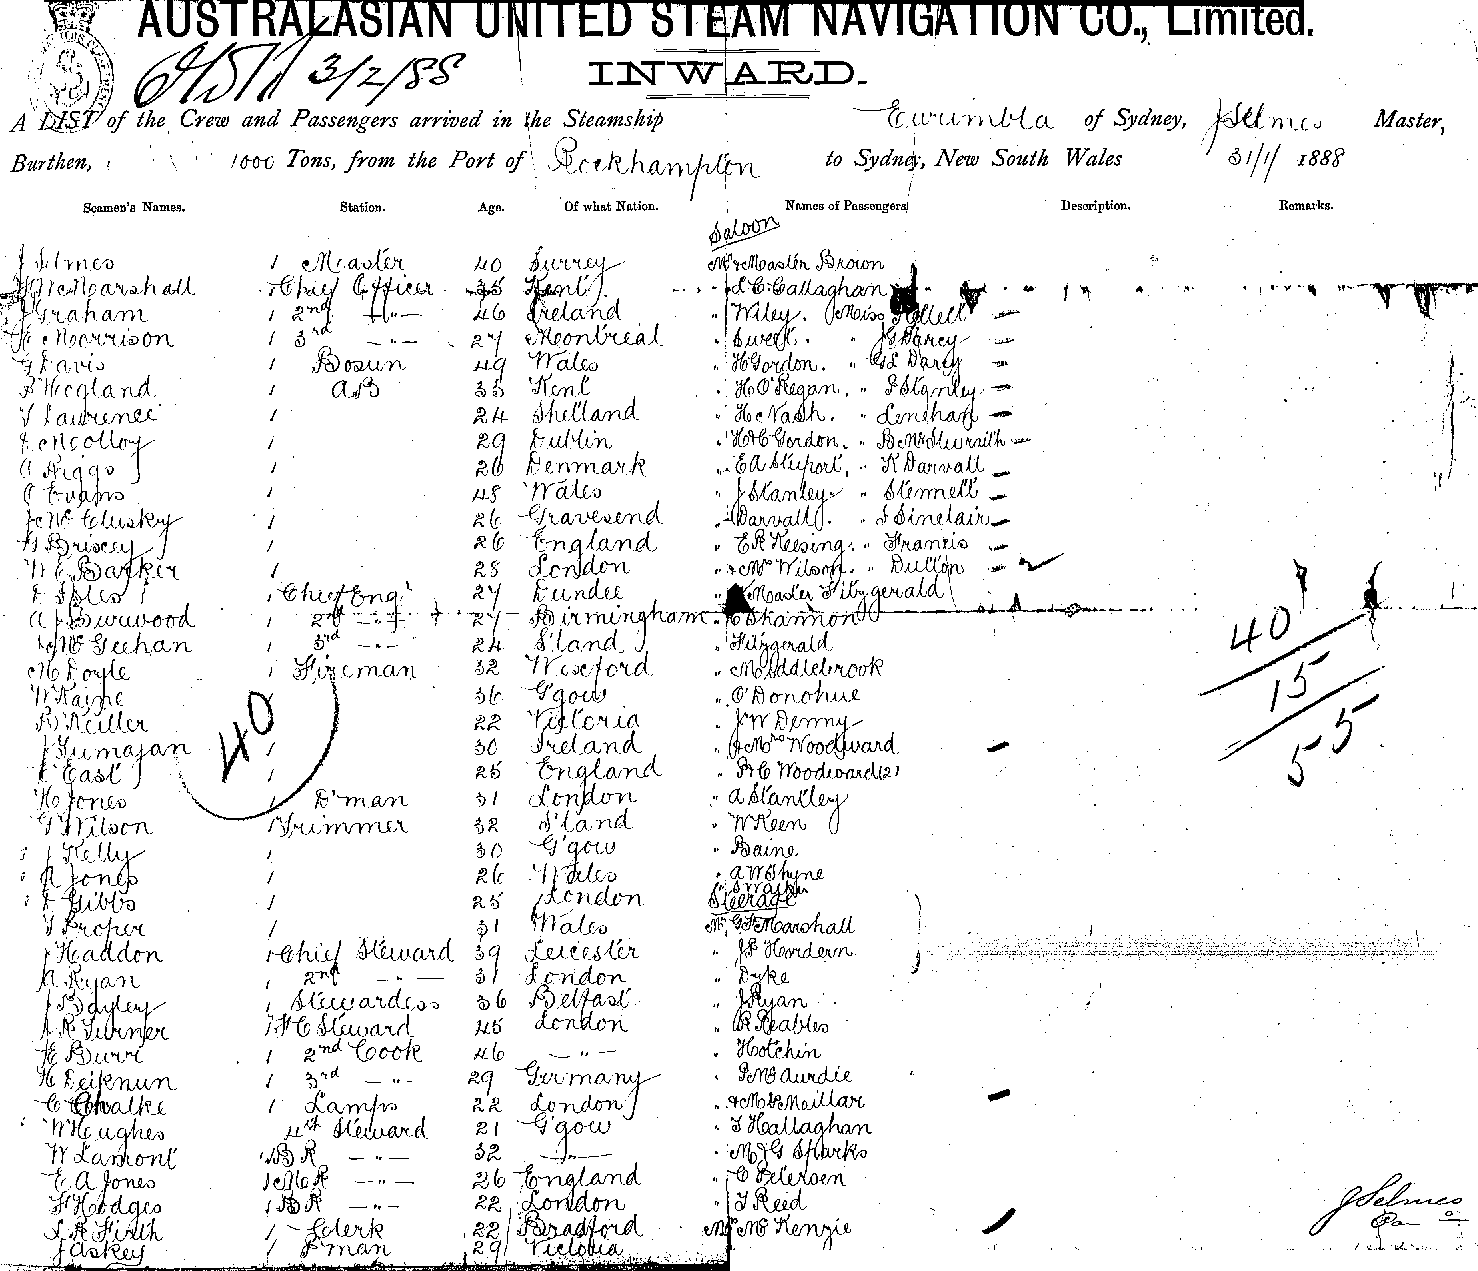 AUSTRALASIAN UNITED STEAM NAVIGATION CO., Limited.
3/2/88
INWARD.
A LIST of the Crew and Passengers arrived in the Steamship Eurimbla of Sydney, J Selmes Master,
Burthen, 1000 Tons, from the Port of Rockhampton to Sydney, New South Wales 31/1/ 1888
Seamen's Names. Station. Age. Of what Nation. Names of Passengers Description. Remarks.
Saloon
J Selmes 1 Master 40 Surrey Mr & Master Brown
Marshall 1 Chief Officer 35 Kent " L C Callaghan
J Graham 1 2nd -"- 46 Ireland " Wiley. Miss Kellett —
Morrison 1 3rd -"- 27 Montreal " Sweet. " J G Darcy —
G Davis 1 Bosun 49 Wales " H Gordon. " G L Darcy —
Hegland 1 AB 33 Kent " H O'Regan. " S Stanley —
T Lawrence 1 24 Shetland " H c Nash. " Lenehan —
McColloy 1 29 Dublin " H & C Gordon. " —
A Riggs 1 26 Denmark " E A " K Darvall —
Evans 1 48 Wales " J Stanley " Stennett —
J McClusky 1 26 Gravesend " Darvall. " S Sinclair —
Briscey 1 26 England " E R Keesing. " Francis —
W E Barker 1 28 London " & Mrs Wilson. " Dutton —
Isles 1 Chief Eng 27 Dundee " Master Fitzgerald
A J Burwood 1 2nd -"- 27 Birmingham " C Shannon
McGeehan 1 3rd -"- 24 S'land " Fitzgerald
M Doyle 1 Fireman 32 Wexford " Middlebrook
W Kaine 36 G'gow " O'Donohue
R Keiller 22 Victoria " J W Denny
J 1 30 Ireland " & Mrs Woodward —
East 25 England " R C Woodward (2)
H Jones 1 D'man 31 London " A Stantley
T Wilson 1 Trimmer 32 S'land " W Keen
J Kelly 1 30 G'gow " Baine
A Jones 1 26 Wales " A W Thyne
Gibbs 1 25 London
Steerage
T Proper 1 31 Wales Mr Marshall
J Haddon 1 Chief Steward 39 Leicester " Hordern
A Ryan 1 2nd -"- 31 London " Dyke
J Bayley 1 Stewardess 36 Belfast " J Ryan
A R Turner 1 F C Steward 45 London " R Peables
E Burri 1 2nd Cook 46 -"- " Hotchin
H 1 3rd -"- 29 Germany " P McAurdie
C Chalke 1 Lamps 22 London " —
W Hughes 4th Steward 21 G'gow " T Hallaghan
W Lamont 1 BR -"- 32 -"- " M J G Sparks
E A Jones 1 MR -"- 26 England " C Petersen
F Hodges 1 BR -"- 22 London " T Reed
S R Firth 1 Clerk 22 Bradford Mrs McKenzie —
J Askey 1 F'man 29 Victoria
40
40
15
55
J Selmes